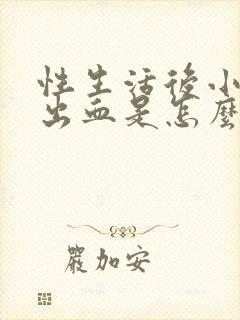 性生活後小
出血是怎麼
嚴加安